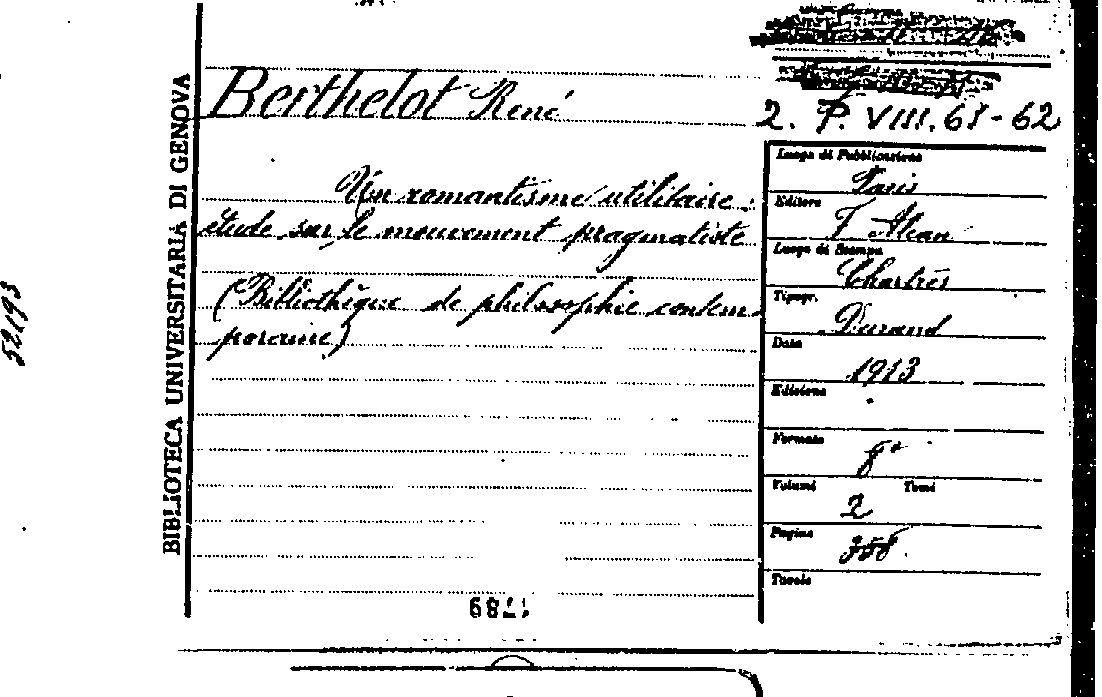 BIBLIOTECA UNIVERSITARIA DI GENOVA
52193
Berthelot René
2. P. VIII. 61-62
Un romantisme utilitaire.
étude sur le mouvement pragmatiste
(Bibliothèque de philosophie contem
poraine)
Luogo di Pubblicazione
Paris
Editore
F Alcan
Luogo di Stampa
Chartres
Tipogr.
Durand
Data
1913
Edizione
Formato
8°
Volumi Tomi
2
Pagine
358
Tavole
1789